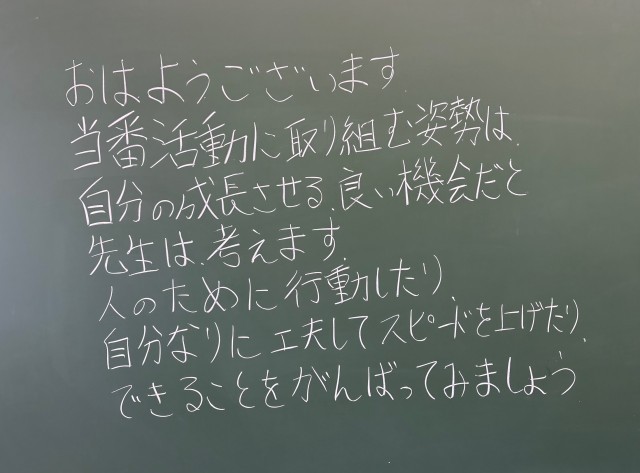 おはようございます.
当番活動に取り組む姿勢は、
自分の成長させる、良い機会だと
先生は、考えます。
人のために行動したり、
自分なりに工夫してスピードを上げたり、
できることをがんばってみましょう